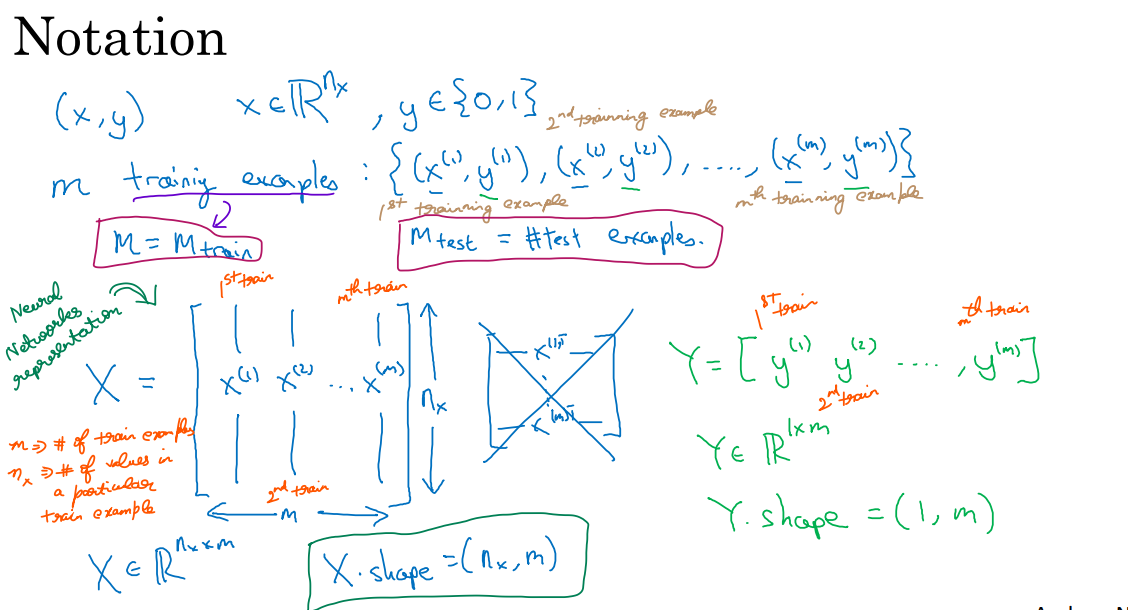 Notation
(x,y) x∈ℝ^nₓ , y∈{0,1}
2nd trainning example
m trainig examples : {(x⁽¹⁾,y⁽¹⁾), (x⁽²⁾,y⁽²⁾), ...., (x⁽ᵐ⁾,y⁽ᵐ⁾)}
1st trainning example
mth trainning example
M = M train
M test = #test examples.
Neural
Networks
representation
1st train
mth train
X = [ x⁽¹⁾ x⁽²⁾ ... x⁽ᵐ⁾ ]
nₓ
2nd train
m
x⁽¹⁾ᵀ
x⁽ᵐ⁾ᵀ
m => # of train examples
nₓ => # of values in
a particular
train example
X ∈ ℝ^nₓ×m
X.shape = (nₓ, m)
1st train
mth train
Y = [ y⁽¹⁾ y⁽²⁾ .... , y⁽ᵐ⁾ ]
2nd train
Y ∈ ℝ^1×m
Y.shape = (1, m)